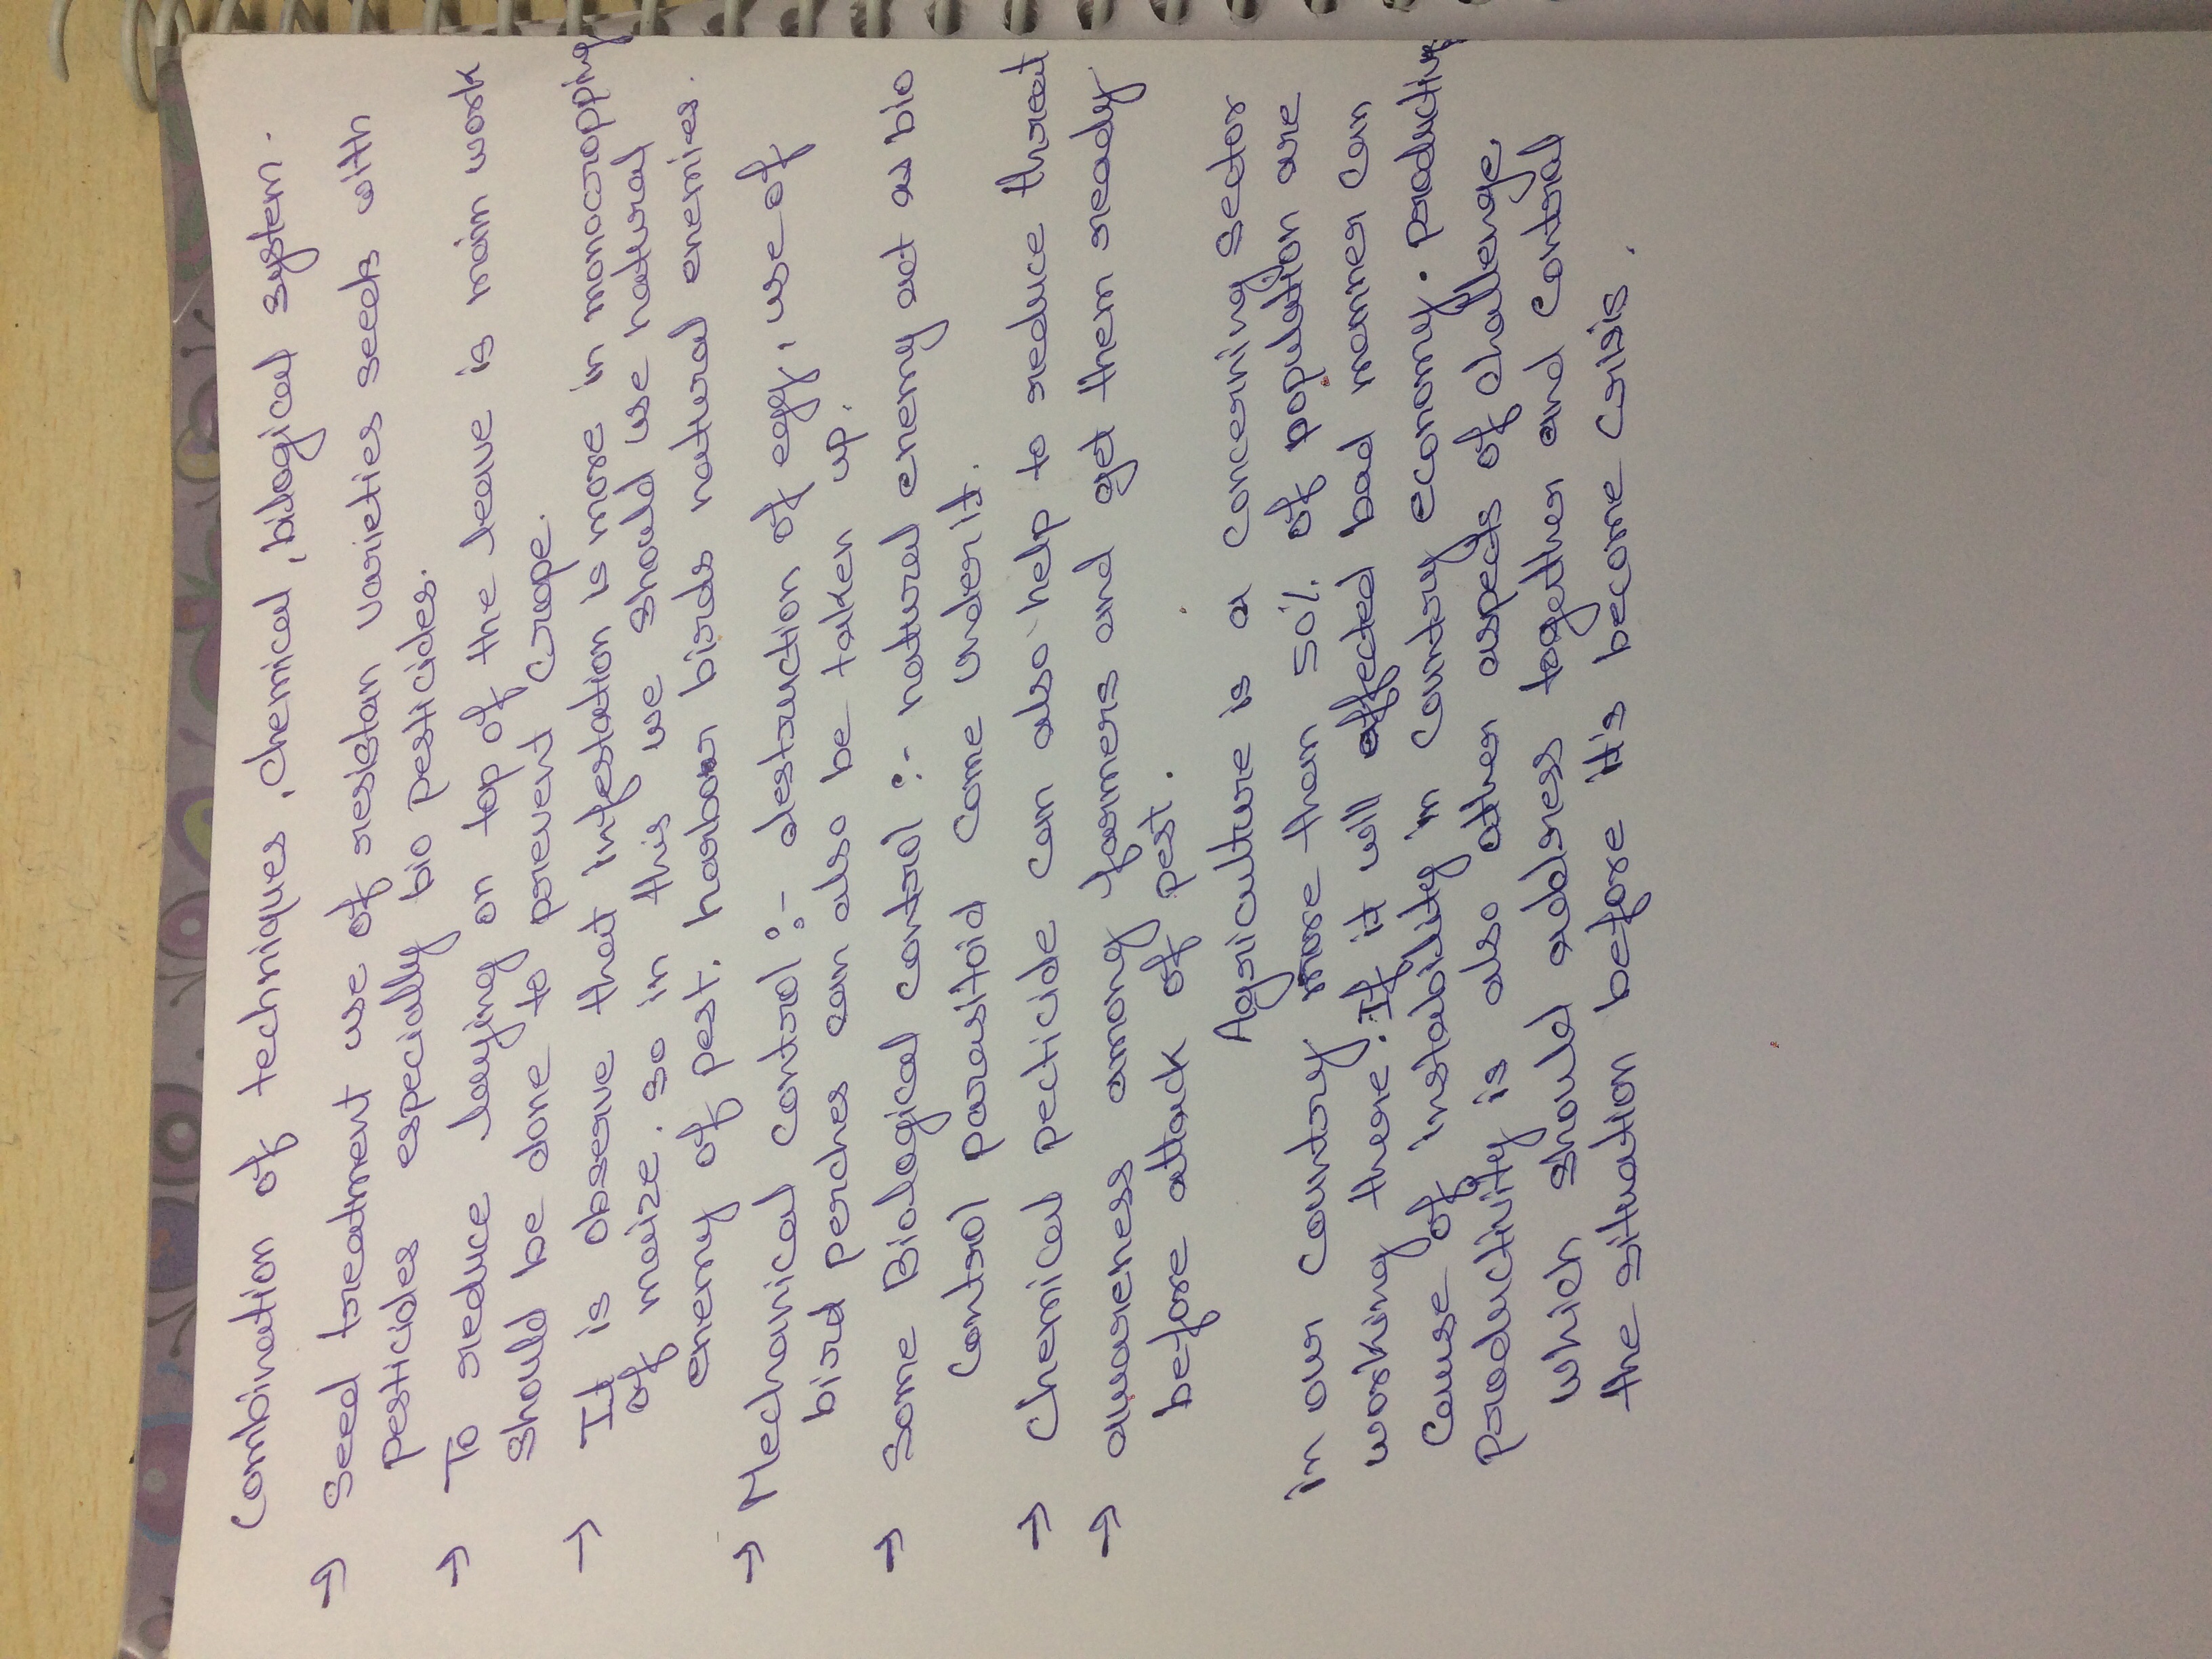 Combination of techniques, chemical, bilogical system.
→ Seed treatment use of resistan varieties seeds with
pesticides especially bio pesticides.
→ To reduce laying on top of the leave is main work
should be done to prevent crope.
→ It is observe that infestation is more in monocropping
of maize. so in this we should use natural
enemy of pest. harbour birds natural enemies.
→ Mechanical control :- destruction of egg, use of
bird perches can also be taken up.
→ Some Biological control :- natural enemy act as bio
control parasitoid come under it.
→ Chemical pecticide can also help to reduce threat
→ awareness among farmers and get them ready
before attack of pest.
Agriculture is a concering sector
in our country more than 50% of population are
working there. If it will affected bad manner can
cause of instability in country economy. productivity
productivity is also other aspects of challenge
which should address together and control
the situation before it's become crisis.